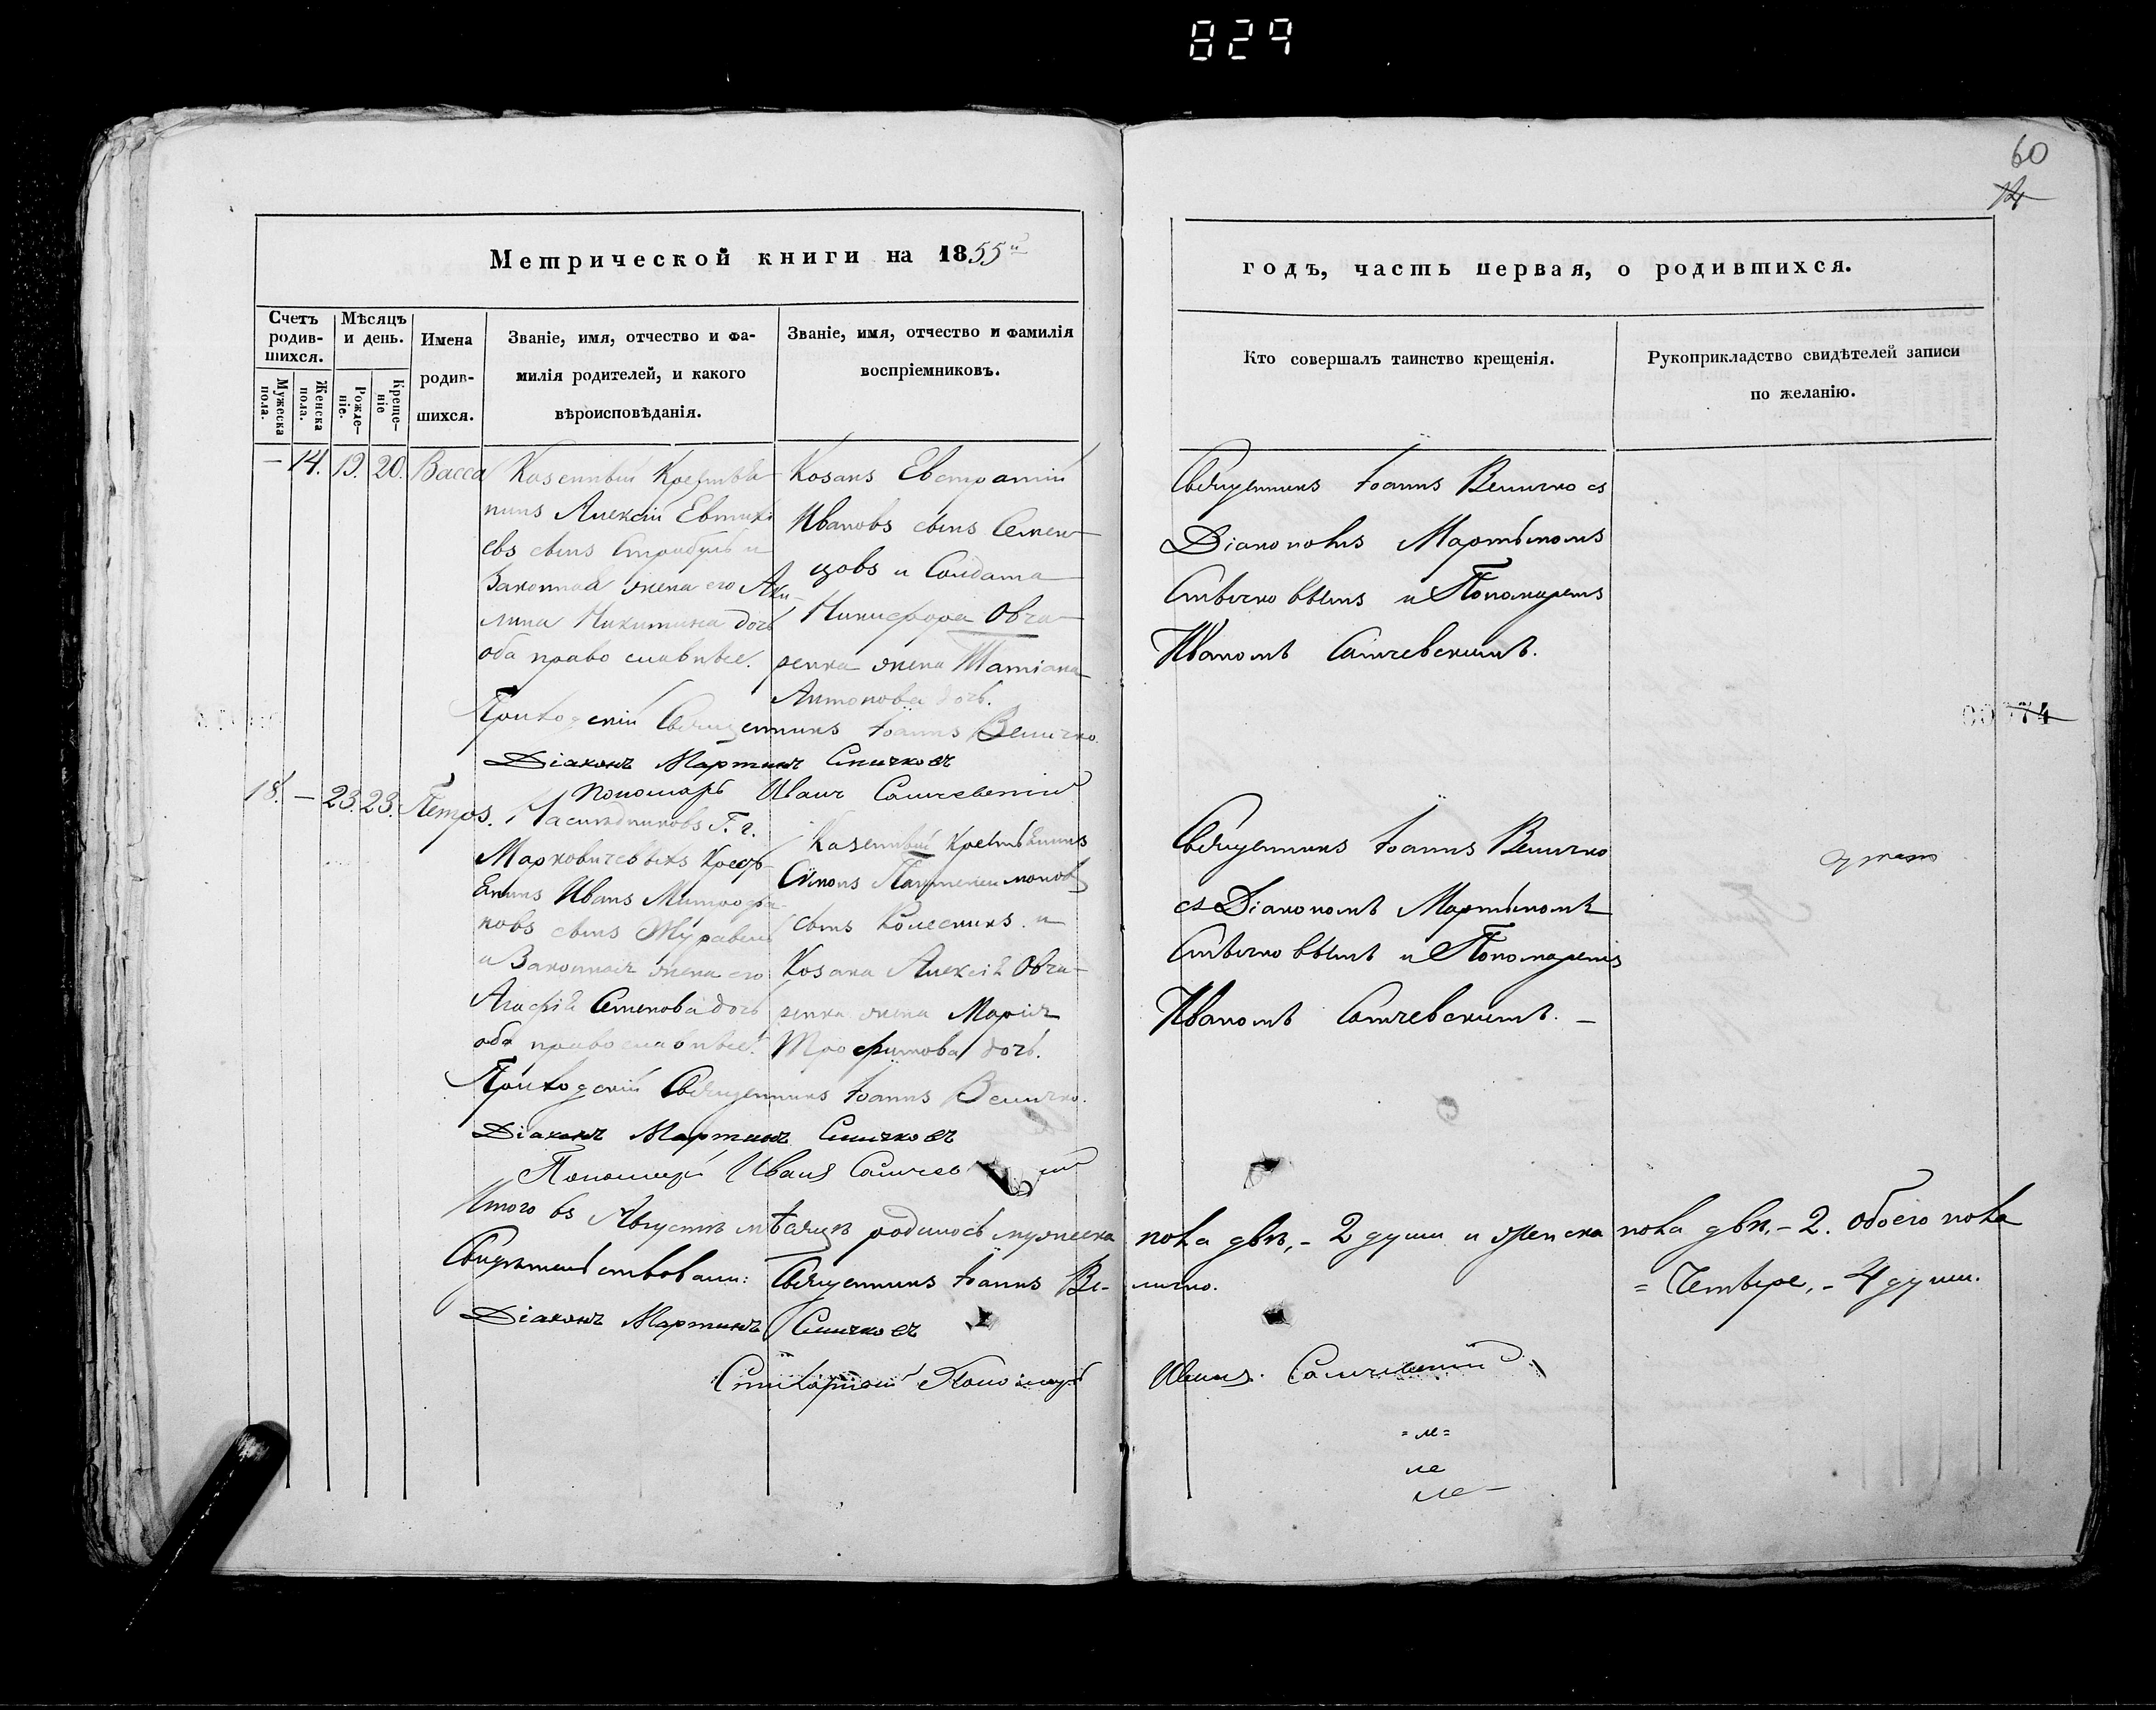 829
60
14
Метрической книги на 1855й
годъ, часть первая, о родившихся.
Счетъ родив-шихся.
Мужеска пола.
Женска пола.
Мѣсяцъ и день.
Рожде-ніе.
Креще-ніе
Имена родив-шихся.
Званіе, имя, отчество и фа-
милія родителей, и какого
вѣроисповѣданія.
Званіе, имя, отчество и фамилія
воспріемниковъ.
Кто совершалъ таинство крещенія.
Рукоприкладство свидѣтелей записи
по желанію.
— 14. 19. 20. Васса
Казенный Крестья
нинъ Алексій Евтихі
евъ сынъ и
Законная жена его Аки-
лина Никитина дочь
оба православные.
Козакъ Евстратій
Ивановъ сынъ Семен
цовъ и Солдата
Никифора Овча
ренка жена Татіана
Антонова дочь.
Священникъ Іоаннъ Величко съ
Діакономъ Мартиномъ
Спичковымъ и Пономаремъ
Иваномъ
Приходскій Священникъ Іоаннъ Величко.
Діаконъ Мартинъ Спичковъ
Пономарь Иванъ
74
18. — 23. 23. Петръ.
Наслѣдниковъ Г. г.
Марковичевыхъ Кресть
янинъ Иванъ Митрофа-
новъ сынъ Журавель
и Законная жена его
Агафія Семенова дочь
оба православные.
Казенный Крестьянинъ
Симонъ Пантелеимоновъ
сынъ Колесникъ и
Козака Алексія Овча-
ренка жена Марія
Трофимова дочь.
Священникъ Іоаннъ Величко
съ Діакономъ Мартиномъ
Спичковымъ и Пономаремъ
Иваномъ
Приходскій Священникъ Іоаннъ Величко.
Діаконъ Мартинъ Спичковъ
Пономарь Иванъ
Итого въ Августѣ мѣсяцѣ родилось мужеска пола двѣ, - 2 души и женска пола двѣ, - 2. обоего пола
= Четыре, - 4 души.
Свидѣтельствовали: Священникъ Іоаннъ Ве-личко.
Діаконъ Мартинъ Спичковъ
Стихарный Пономарь Иванъ